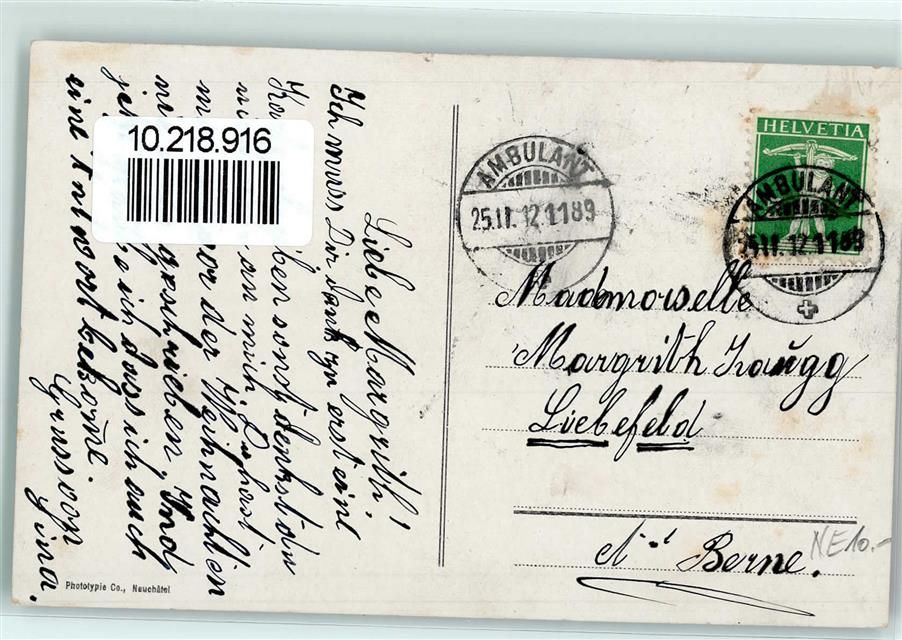 10.218.916
Liebe Margrith!
Ich muss Dir dant zn erst eine
Ka ben sonst denkst du
ni an mich. Du hast
m vor der Weihnachten
m geschrieben, Und
je ich dass ich auch
eine Antwort bekome.
Gruss von
Gina.
Phototypie Co., Neuchâtel
AMBULANT
25.II.12 1189
HELVETIA
AMBULANT
25.II.12 1189
Mademoiselle
Margrith Zaugg
Liebefeld
Berne.
NE 10.-